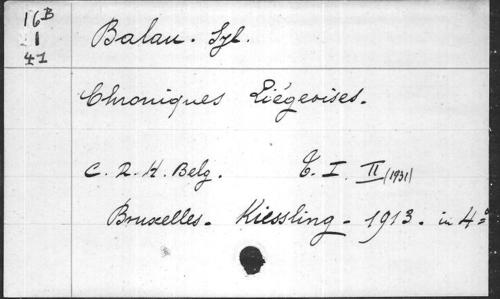 16B
1
41
Balau. Syl.
Chroniques Liégeoises.
C. R. H. Belg. T. I. II (1931)
Bruxelles - Kiessling - 1913. in 4=°